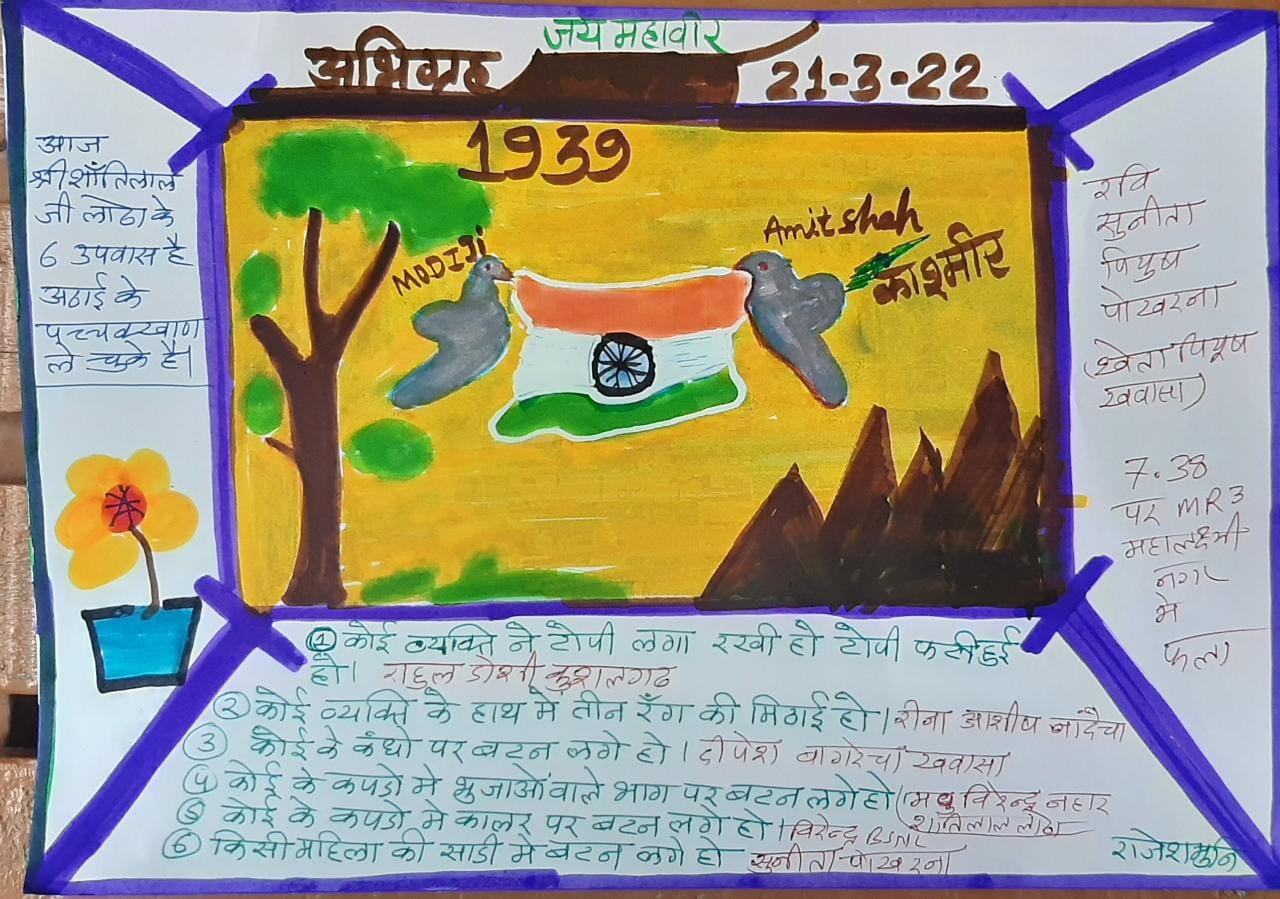 जय महावीर
अभिग्रह
21-3-22
1939
आज
श्री शाँतिलाल
जी लोढा के
6 उपवास है
अठाई के
पच्चक्खाण
ले चुके है।
MODIJi
Amit shah
काश्मीर
रवि
सुनीता
पियुष
पोखरना
(श्वेता पियूष
खवासा)
7.38
पर MR3
महालक्ष्मी
नगर
मे
फला
① कोई व्यक्ति ने टोपी लगा रखी हो टोपी फटी हुई
हो। राहुल डोशी कुशलगढ
② कोई व्यक्ति के हाथ मे तीन रँग की मिठाई हो। रीना आशीष नांदेचा
③ कोई के कंधो पर बटन लगे हो। दीपेश बागरेचा खवासा
④ कोई के कपडो मे भुजाओं वाले भाग पर बटन लगे हो। मधु विरेन्द्र नहार
⑤ कोई के कपडो मे कालर पर बटन लगे हो। विरेन्द्र BSNL शाँतिलाल लोढा
⑥ किसी महिला की साडी मे बटन लगे हो सुनीता पोखरना
राजेशमुनि